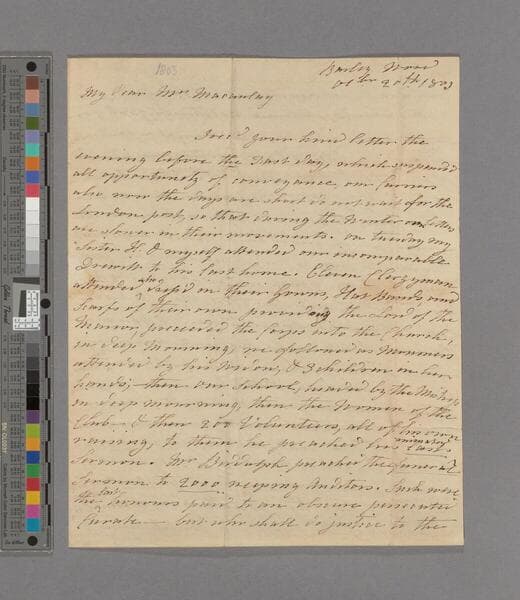 1803
Barley Wood
20th 1803
My dear Mrs Macaulay
I recd your kind letter the
evening before the Fast day, which suspended
all opportunity of conveyance our
also now the days are short do not wait for the
London post, so that during the Winter our letters
are slower in their movements. On tuesday my
Sister P. & myself attended our incomparable
Drewitt to his last home. Eleven Clergyman
attended also dress'd in their Gowns, Hat Bands and
Scarfs of their own providing the Lord of the
Manor, preceeded the Corps into the Church,
in deep Mourning, we followed as Mourners
attended by his Widow, & 3 children in her
hands; then our School, headed by the
in deep mourning, then the Women of the
Club & then 200 Volunteers, all of his own
raising, to them he preached his last
Sermon. Mr Biddulph preached the funeral
Sermon to 2000 weeping Auditors. Such were
the last honours paid to an obscure persecuted
Curate — but who shall do justice to the